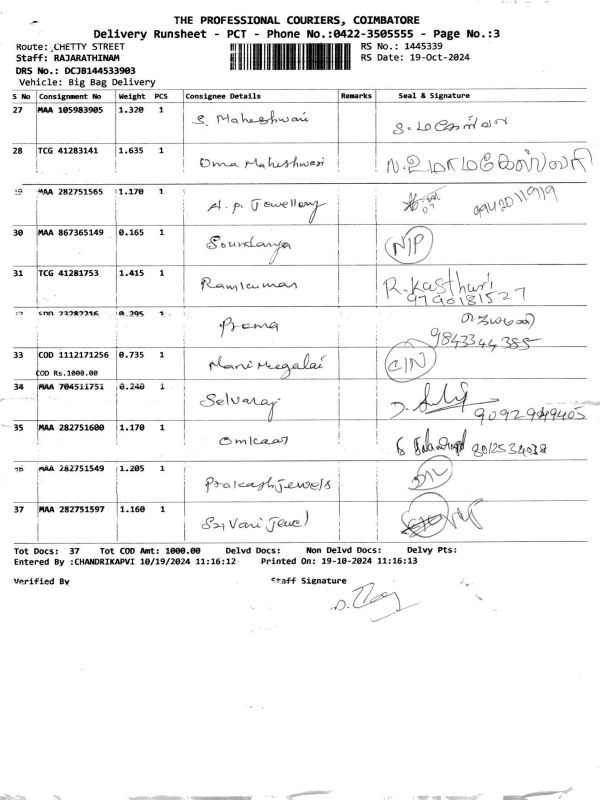 THE PROFESSIONAL COURIERS, COIMBATORE
Delivery Runsheet - PCT - Phone No.:0422-3505555 - Page No.:3
Route: CHETTY STREET
RS No.: 1445339
Staff: RAJARATHINAM
RS Date: 19-Oct-2024
DRS No.: DCJB144533903
Vehicle: Big Bag Delivery
S No Consignment No Weight PCS Consignee Details Remarks Seal & Signature
27 MAA 105983905 1.320 1 S. Maheshwari S. மகேஸ்வரி
28 TCG 41283141 1.635 1 Uma Maheshwari ந. உமாமகேஸ்வரி
29 MAA 282751565 1.170 1 A.P. Jewellery
30 MAA 867365149 0.165 1 Soundarya N/P
31 TCG 41281753 1.415 1 Ramkumar R. Kasthuri
9790181527
32 COD 23282216 0.295 1 Prema
9843344385
33 COD 1112171256 0.735 1 Manimegalai CIN
COD Rs.1000.00
34 MAA 704511751 0.240 1 Selvaraj
35 MAA 282751600 1.170 1 Omkaar 8012534038
36 MAA 282751549 1.205 1 Prakash Jewels D/L
37 MAA 282751597 1.160 1 Sri Vari Jewel
Tot Docs: 37 Tot COD Amt: 1000.00 Delvd Docs: Non Delvd Docs: Delvy Pts:
Entered By :CHANDRIKAPVI 10/19/2024 11:16:12 Printed On: 19-10-2024 11:16:13
Verified By Staff Signature